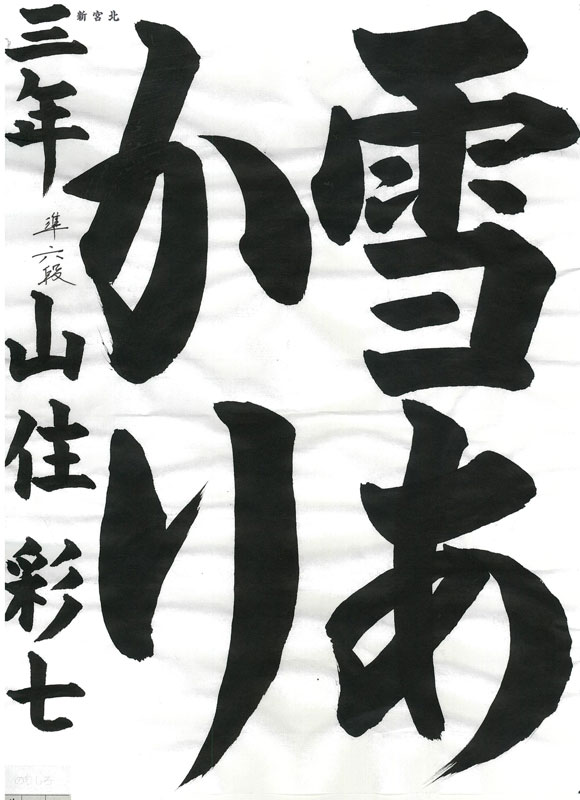 雪あ
かり
新宮北
三年 準六段 山住彩七